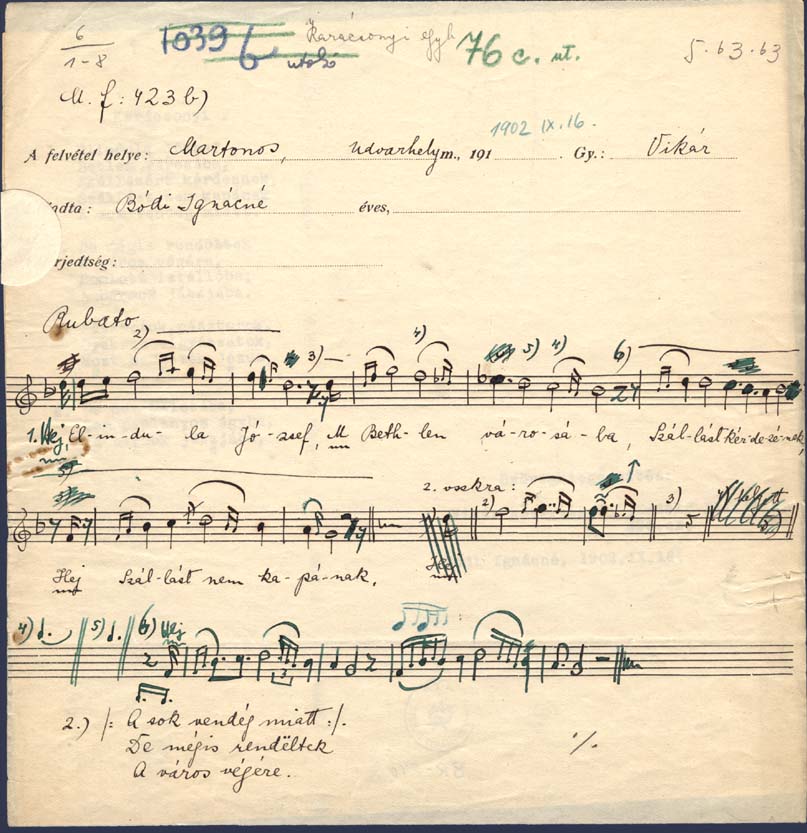 6
1-8
1039
6
utolsó
Karácsonyi egyh
76 c. ut.
5.63.63
M. f: 423 b)
1902 IX. 16.
A felvétel helye: Martonos, Udvarhelym., 191 . Gy.: Vikár
adta: Bódi Ignácné éves,
rjedtség:
Rubato
2) 3) 4) 5) 4) 6)
1. Hej, El-in-du-la Jó-zsef, M Beth-len vá-ro-sá-ba, Szál-lást kér-de-zé-nek,
5)
2. vszkra: 2) 3) 5
Hej Szál-lást nem ka-pá-nak,
4) 5) 6) Hej
3
2.) /: A sok vendég miatt :/.
De mégis rendëltek
A város végére.
./.